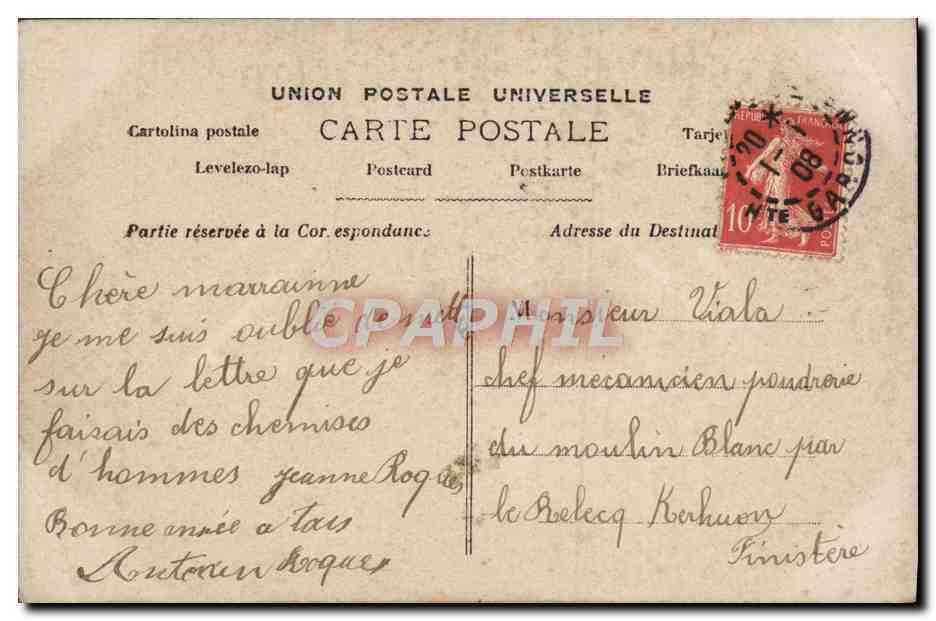 UNION POSTALE UNIVERSELLE
Cartolina postale CARTE POSTALE Tarje
Levelezo-lap Postcard Postkarte Briefkaa
Partie réservée à la Correspondance
Adresse du Destinat
RÉPUB FRANÇAI
10
POS
20 *
1 - 1
08
HTE GARONN
Chère marrainne
je me suis oublié de mett
sur la lettre que je
faisais des chemises
d'hommes Jeanne Roques
Bonne année a tous
Antonin Roques
Monsieur Viala
chef mecanicien poudrerie
du moulin Blanc par
le Relecq Kerhuon
Finistère
CPAPHIL